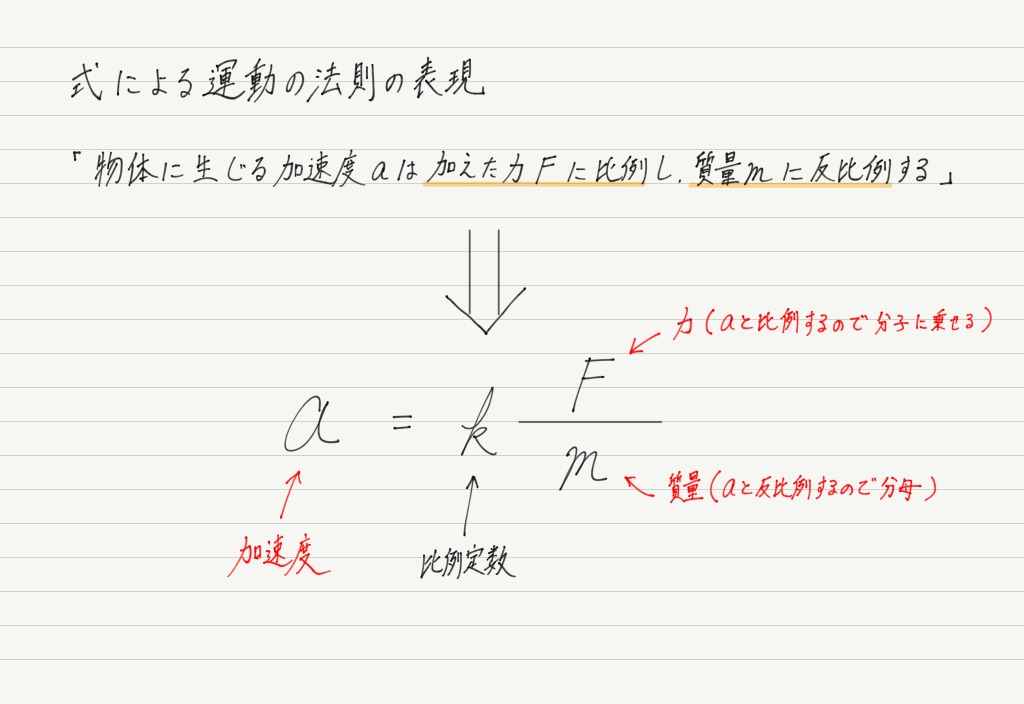 式による運動の法則の表現
「物体に生じる加速度aは加えた力Fに比例し,質量mに反比例する」
力(aと比例するので分子に乗せる)
a = k F/m
質量(aと反比例するので分母)
加速度
比例定数